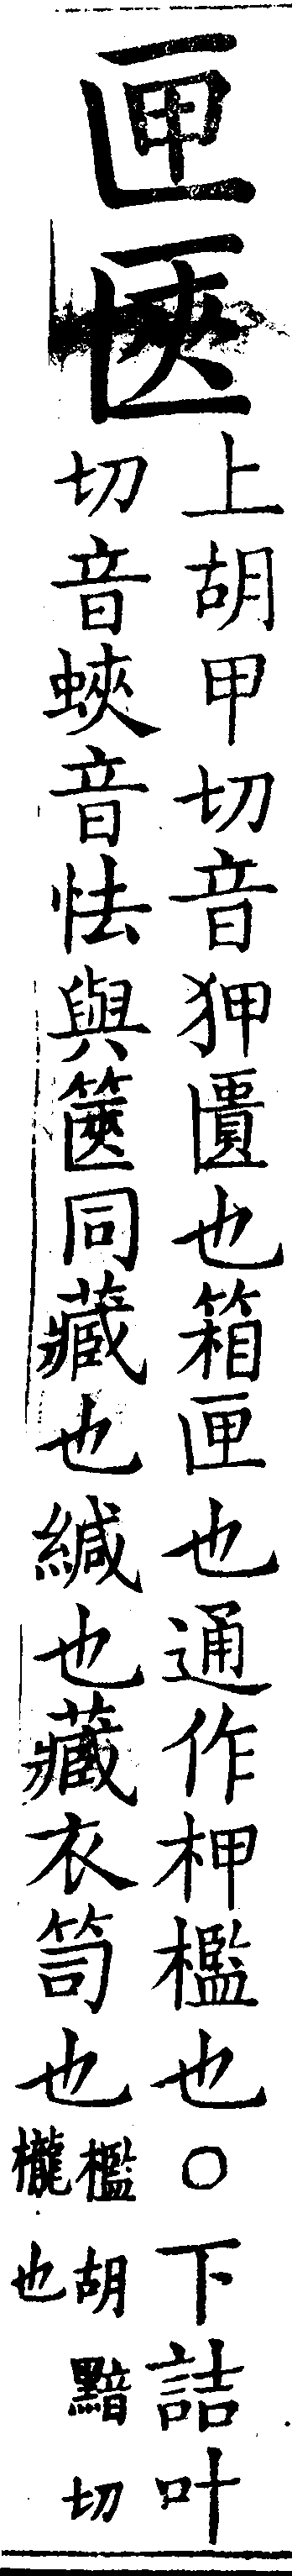 匣匧
上胡甲切音狎匱也箱匣也通作柙檻也○下詰叶
切音蛺音怯與篋同藏也緘也藏衣笥也
檻胡黯切
櫳也